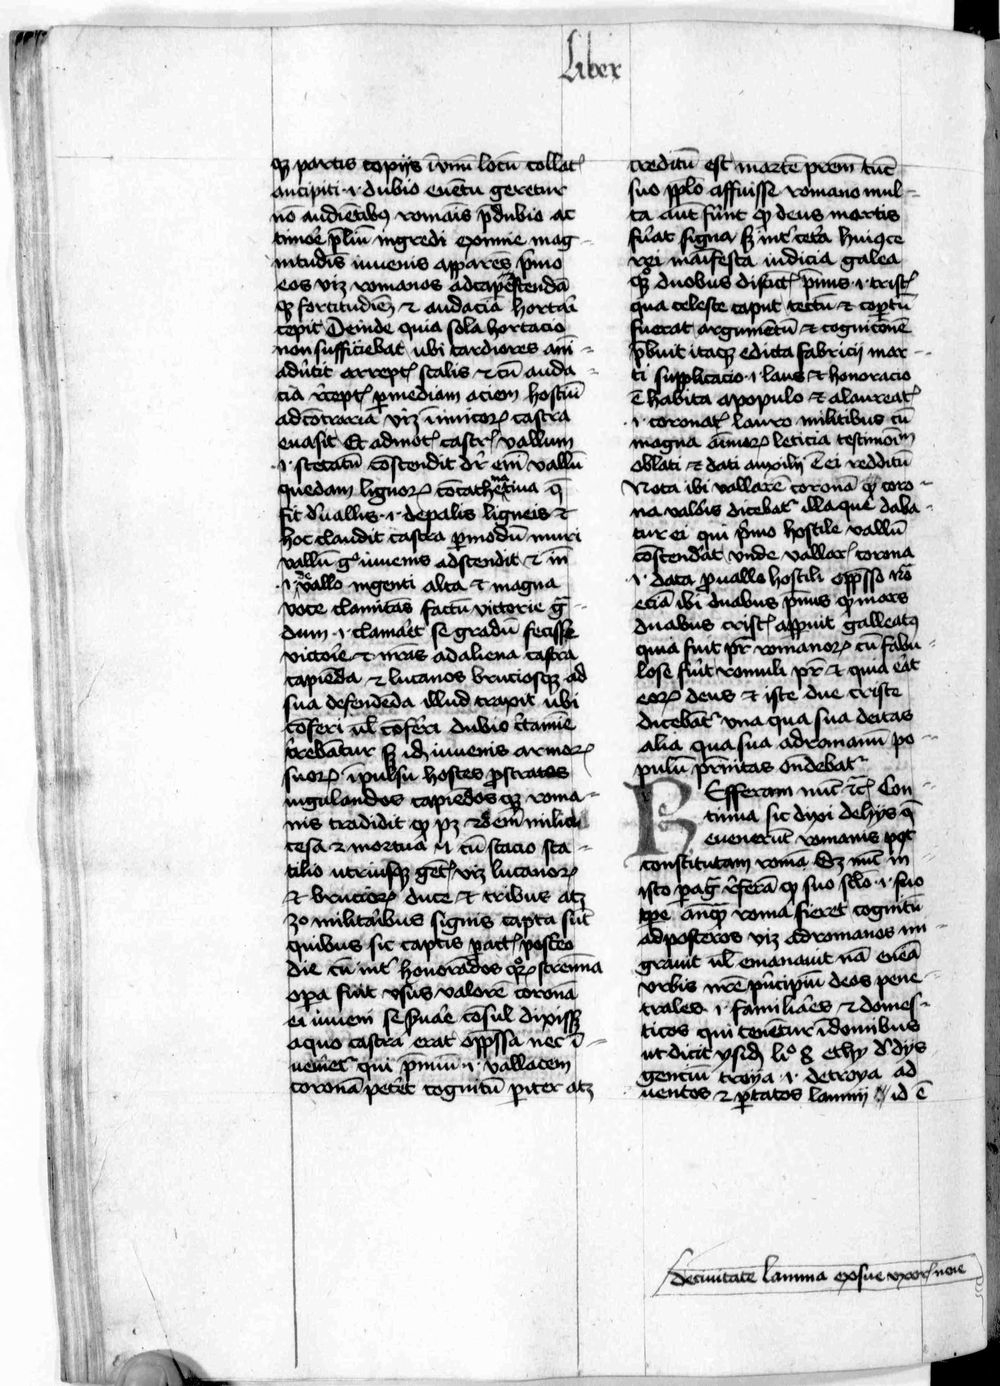 Liber
qꝫ partis copijs ī vnū locū collat
ancipiti ·i· dubio euētu geretur
nō audiētibꝰ romāis p̄dubio ac
timōe p̄liū ingredi eximie mag-
nitudīs iuuenis apparēs p̄mo
eos viꝫ romanos ad capescendā
qꝫ fortitudiēꝫ et audaciā hortāi
cepit Deinde quia sola hortacio
non sufficiebat ubi tardiores aīī-
aduītit arrept scalis et cū auda-
cia r̄cept p mediam aciem hostiū
ad cōtrariā viꝫ inimicoꝝ castra
euasit Et admot castr vallum
·i· scētatū cōscendit dr̄ eīm vallū
quedam lignoꝝ cōcathētiua q̄
fit vallis ·i· de palis ligneis et
hoc claudit castra p modū muri
vallū gͦ iuuenis adscendit et īn
·i· de vallo ingenti alta et magna
voce clamitas factū victorie g̅-
dum ·i· clamāēt se gradū fecisse
victōie et nr̄as ad aliena castra
capiēda et lucanos bruciosqꝫ ad
sua defendēda illud traxit ubi
cōferi ul cōferi dubio c̄tamie
t̄rebantur sꝫ idꝫ iuuenis armoꝝ
suoꝝ īpulsū hostes prostratos
iugulandos capiēdosqꝫ roma-
nis tradidit
cesa et mortua ·i· cū stacio sta-
tilio utriusqꝫ gēt viꝫ lucanoꝝ
et brucioꝝ duce et tribus atꝫ
20 militāibus signis capta sūt
quibus sic captis pact postero
die cū int honorādos qͦꝝ strēnua
opa fuit vsus valorē coronā
ei iuueni seruāe cōsul dixissꝫ
a quo castra erat opp̄ssa nec ī-
uenēt qui p̄miū ·i· vallacem
coronā petēt cognitū piter atꝫ
creditū est martē prēm tūc
suo pplo affuisse romano mul-
ta aūt fūnt qꝫ deus martis
fūat signa sꝫ int cetā huiꝰce
rei maifesta indicia galea
qͦꝫ duobus distict p̄nis ·i· crist
qua celeste caput tectū et coptū
fuerat argumētū et cognicōnē
p̄buit itaqꝫ edicta fabricij mar-
ti supplicacio ·i· laus et honoracio
ē habita a populo et a laureat
·i· coronat lauro militibus cū
magna aīmoꝝ leticia testimoīm
oblati et dati auxilij ē ei redditū
Nota ibi vallarē coronā qꝫ coro-
na valōis dicebat illa que daba-
tur ei qui p̄mo hostile vallū
cōscendāt vnde vallar corona
·i· data pro vallo hostili opp̄sso nō
eciā ibi duabus p̄nis qꝫ mars
duabus crist appuit galleatꝰ
quia fuit pr̄ romanoꝝ cū fabu-
lose fūit romuli pr̄ et quia eāt
eoꝝ deus et iste due criste
dicebāt vna qua sua deitas
alia qua sua ad romanū po-
pulū pr̄nitas ōndebat
REfferam nūc ꝛc Con-
tinua sic dixi de hijs q̄
euenerūt romanis post
constitutam romā Sꝫ nūc in
isto pag r̄ferā qꝫ suo sc̄lo ·i· suo
tp̄e āūqꝫ roma fieret cognitū
ad posteros viꝫ ad romanos mi-
grauit ul emanauit nā eneā
vrbis nr̄e p̄ncipiū deos pene-
trales ·i· familiāes et domes-
ticos qui tenētur ī domibus
ut dicit ysidꝫ liͦ 8 ethy de dys
gencium troya ·i· de troya ad
uentos et p̄tatos lauinij id ē
de ciuitate lauina ex sue vxoꝝ noīe